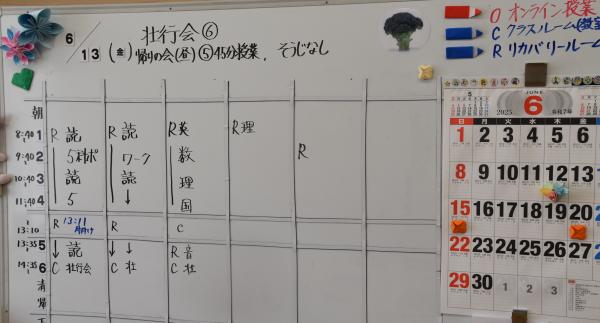 壮行会⑥
6/13(金)帰りの会(昼)⑤45分授業、そうじなし
O オンライン授業
C クラスルーム(教室
R リカバリールーム
朝
8:40 1 R 読 R 読 R 英 R 理
9:40 2 5科ポ ワーク 数 R
10:40 3 読 読 理
11:40 4 5 ↓ 国
13:10 R 13:11 R C
13:35 5 ↓ 読 ↓ ↓ R 音
14:35 6 C 壮行会 C 壮 C 社
清
帰
5 JUNE 7
2025 6 令和7年
日 月 火 水 木 金
1 2 3 4 5 6
8 9 10 11 12 13
15 16 17 18 19 20
22 23 24 25 26 27
29 30 1 2 3